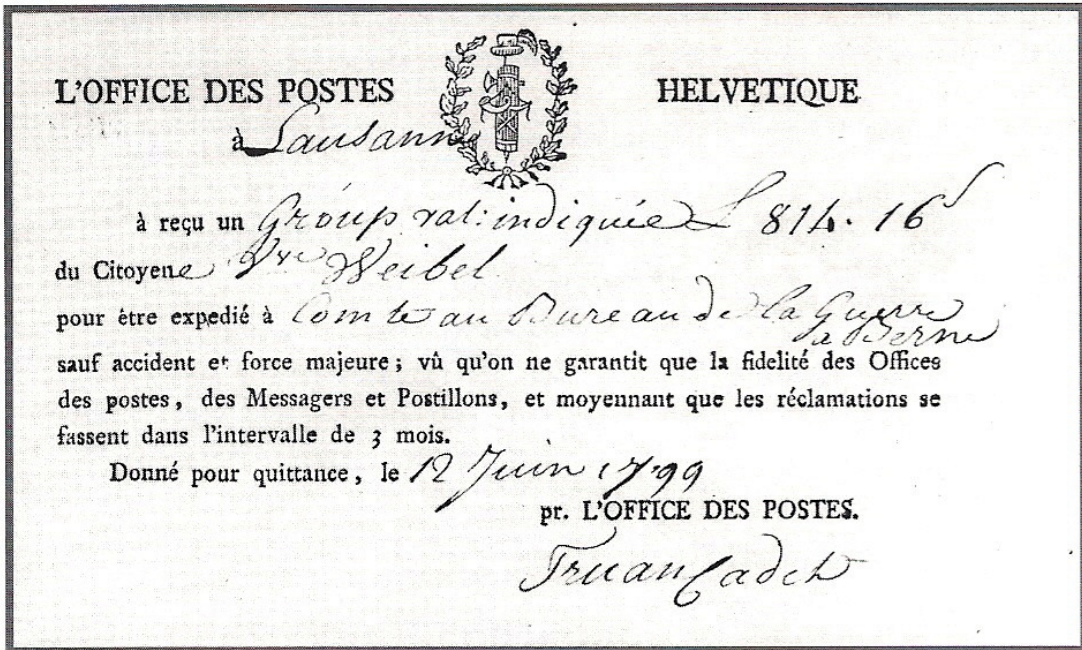 L'OFFICE DES POSTES HELVETIQUE
à Lausanne
à reçu un Group val: indiquée L 814. 16 s
du Citoyene Vve Weibel
pour être expedié à Comte au Bureau de la Guerre
à Berne
sauf accident et force majeure; vû qu'on ne garantit que la fidelité des Offices
des postes, des Messagers et Postillons, et moyennant que les réclamations se
fassent dans l'intervalle de 3 mois.
Donné pour quittance, le 12 Juin 1799
pr. L'OFFICE DES POSTES.
Truan Cadet